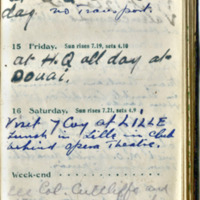 day no Transport.
15 Friday. Sun rises 7.19, sets 4.10
at H.Q all day at
DOUAI.
16 Saturday. Sun rises 7.21, sets 4.9
Visit 7 Coy at LILLE
Lunch in Lille in Club
behind opera Theatre.
Week-end
see Col. Cutcliffe and